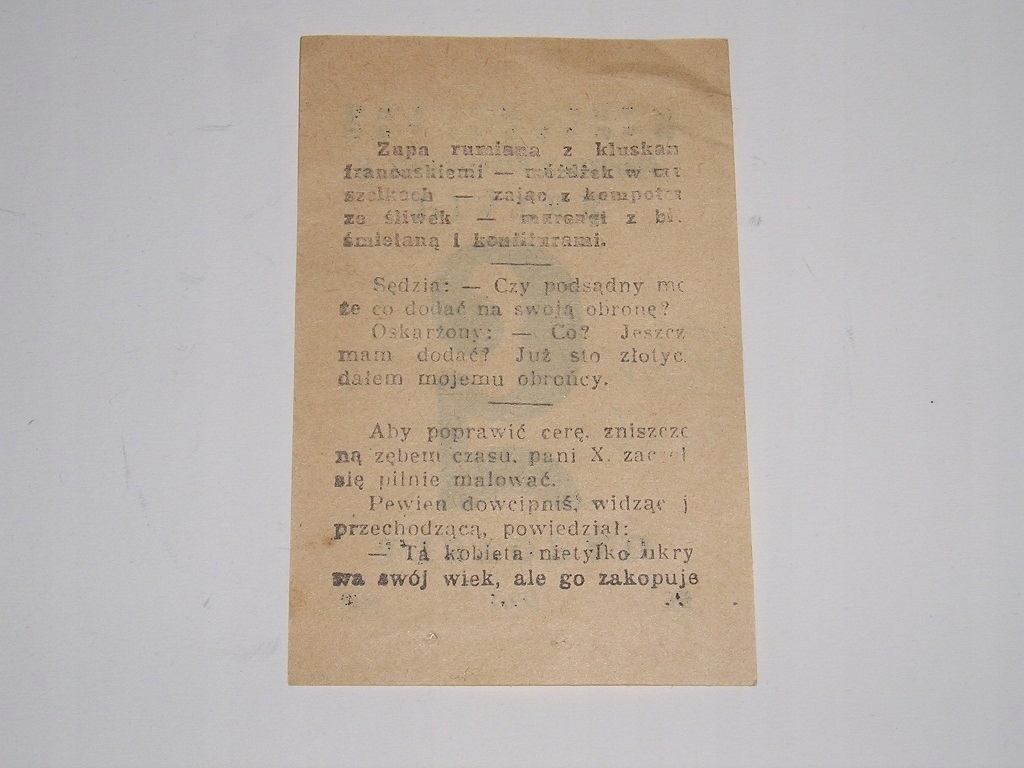 Zupa rumiana z kluskan
francuskiemi — móżdżek w mu
szelkach — zając z kompotu
ze śliwek — marengi z bi.
śmietaną i konfiturami.
Sędzia: — Czy podsądny mo
że co dodać na swoją obronę?
Oskarżony: — Co? Jeszcz
mam dodać? Już sto złotyc
dałem mojemu obrońcy.
Aby poprawić cerę, zniszczo
ną zębem czasu, pani X. zaczęł
się pilnie malować.
Pewien dowcipniś, widząc j
przechodzącą, powiedział:
— Ta kobieta nietylko ukry
wa swój wiek, ale go zakopuje